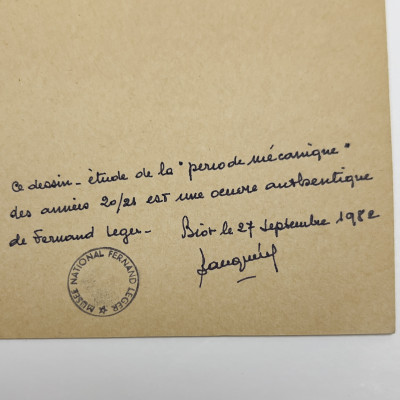 Ce dessin - étude de la "periode mécanique"
des années 20/21 est une oeuvre authentique
de Fernand Leger - Biot le 27 Septembre 1982
MUSÉE NATIONAL FERNAND LEGER